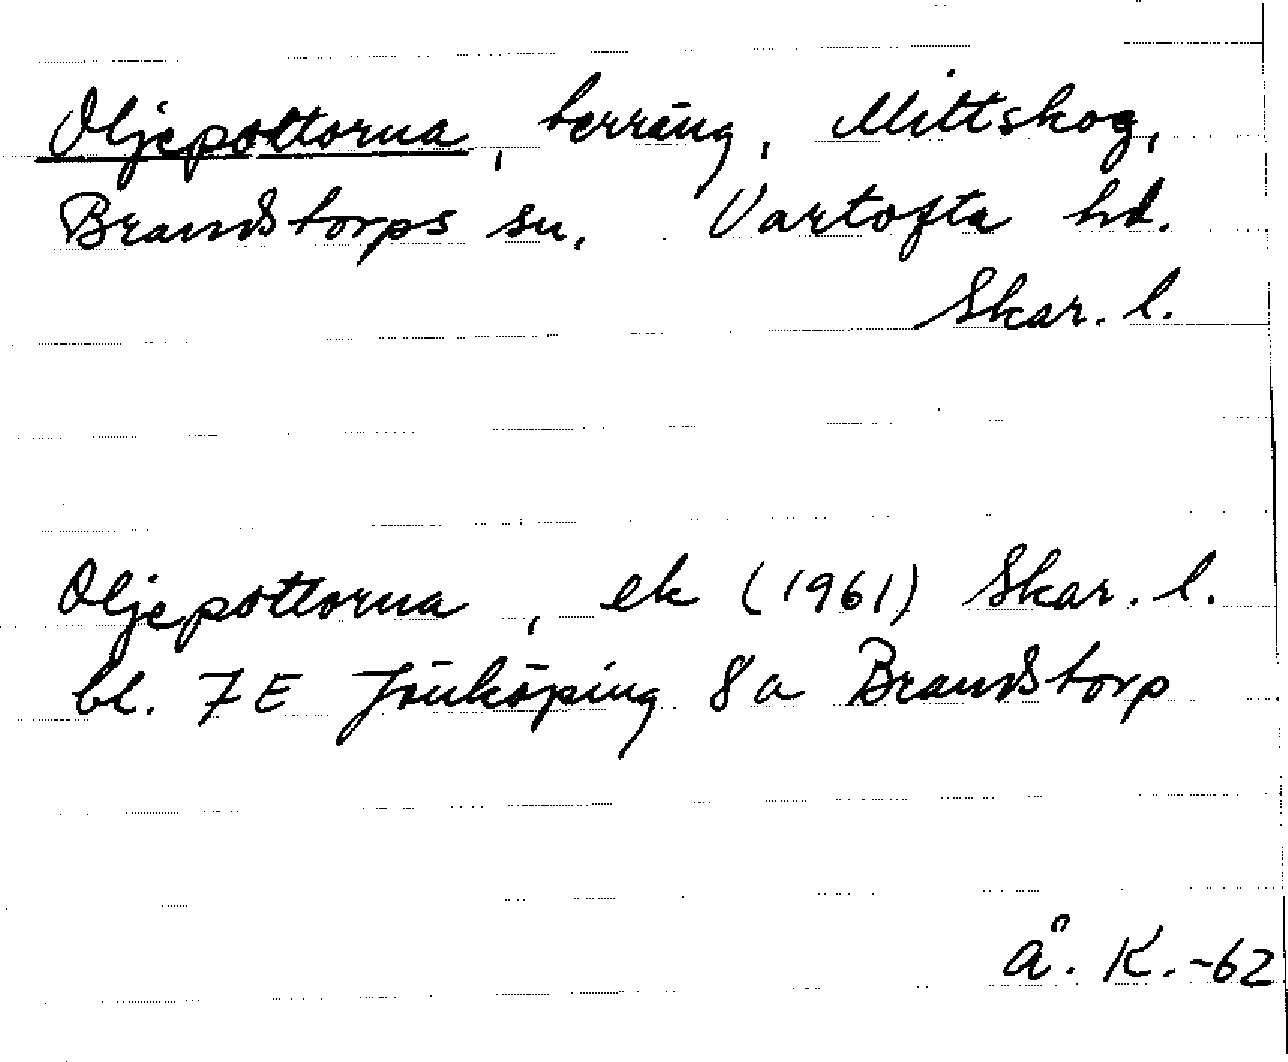 Oljepottorna, terräng, Mittskog,
Brandstorps sn. Vartofta hd.
Skar. l.
Oljepottorna, ek (1961) Skar. l.
bl. 7E Jönköping 8a Brandstorp
Å. K. -62